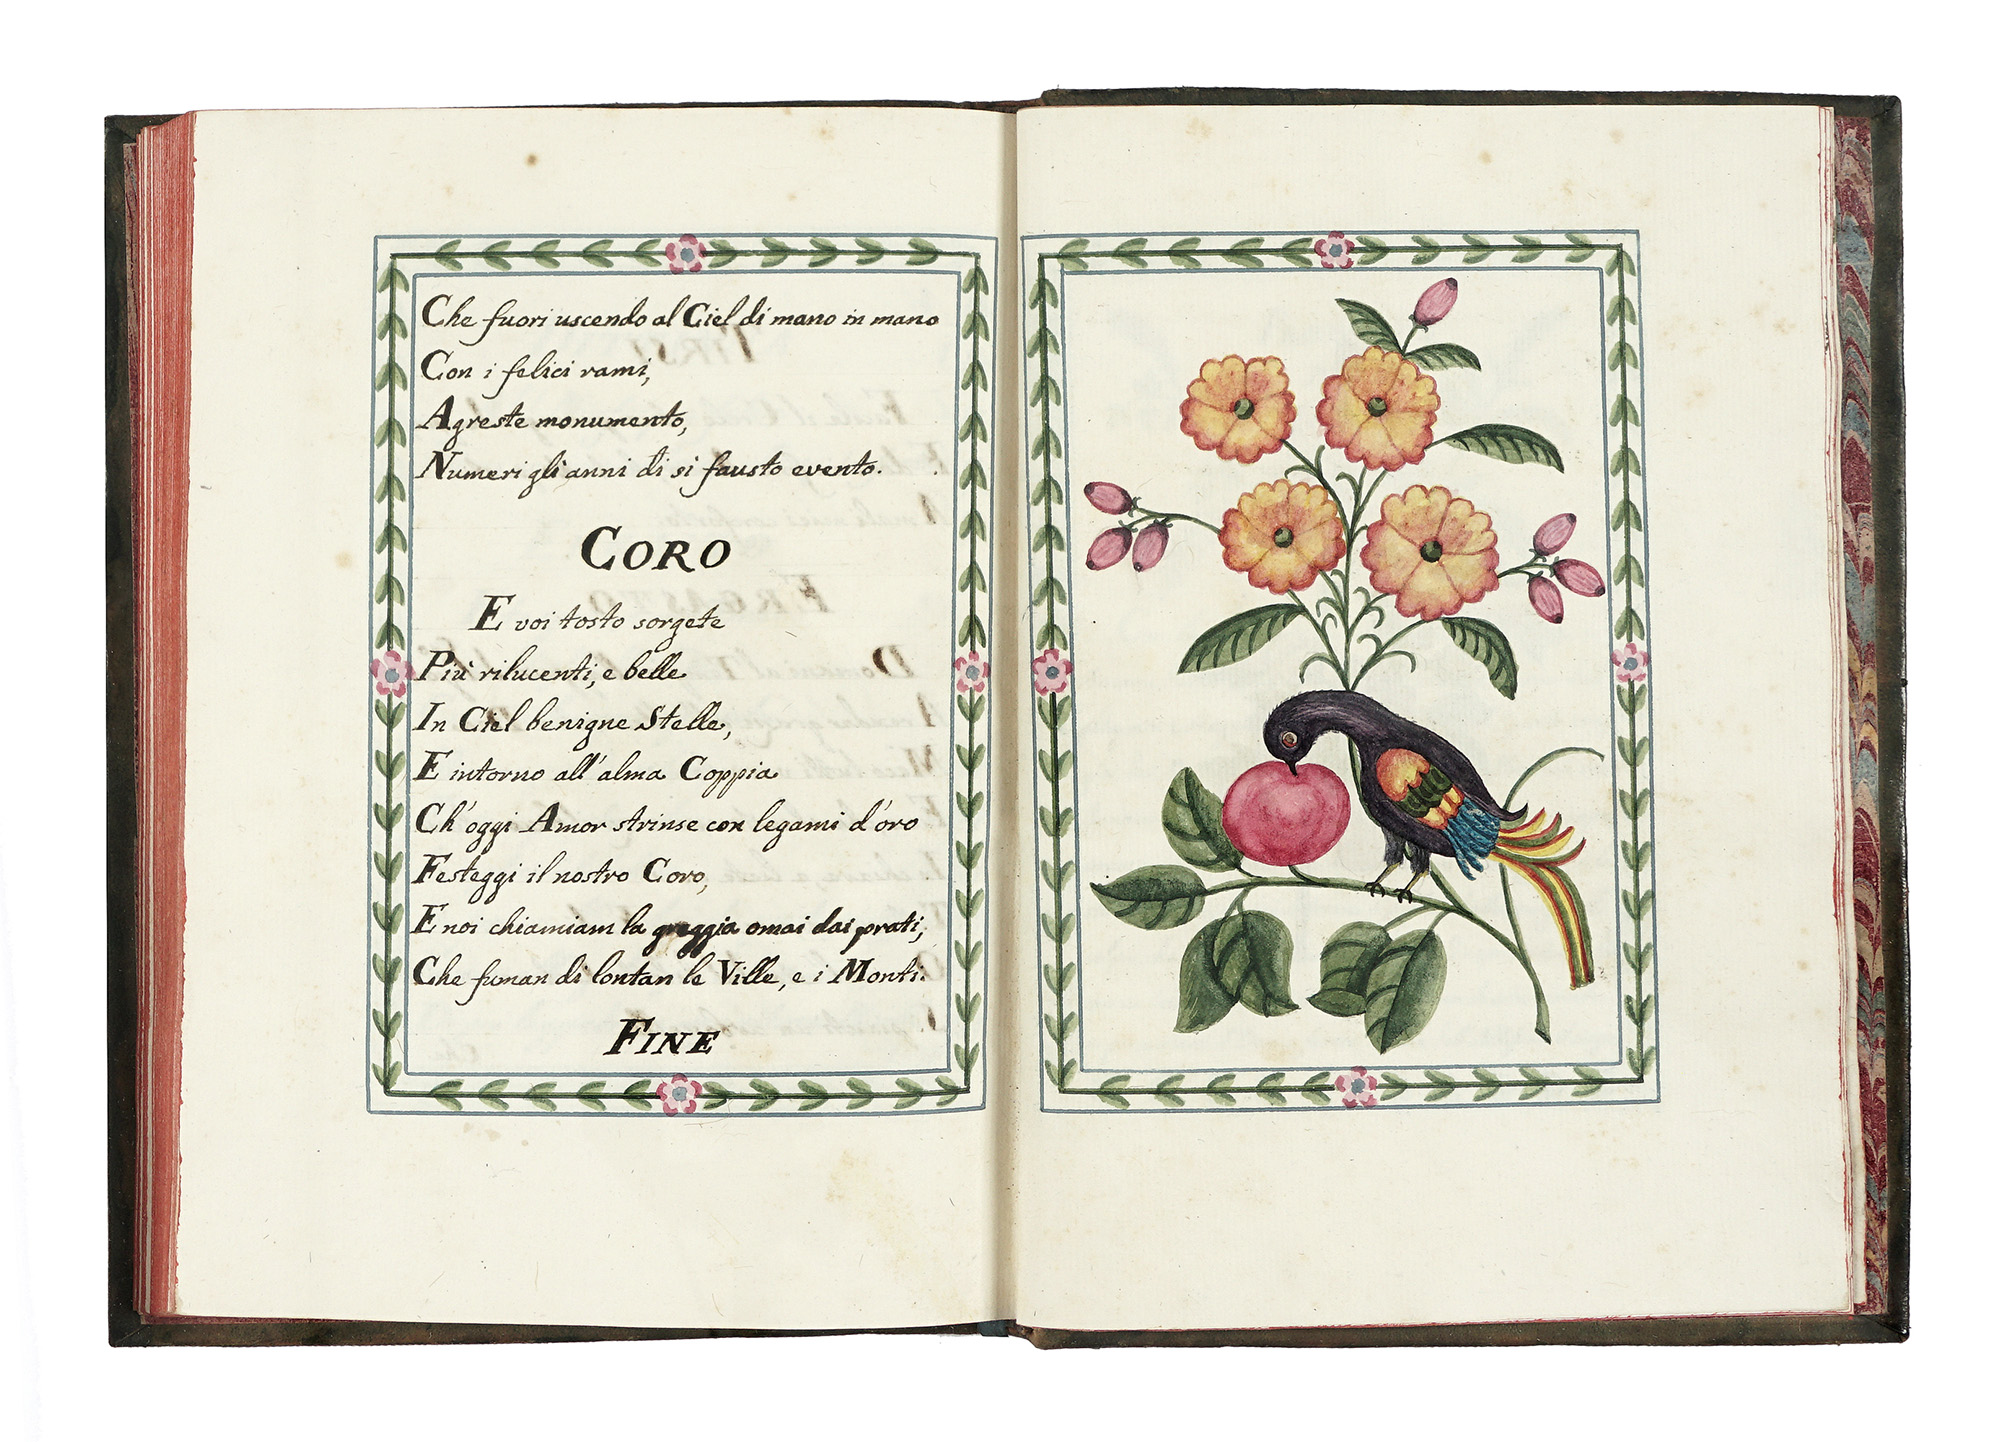 Che fuori uscendo al Ciel di mano in mano
Con i felici rami,
Agreste monumento,
Numeri gli anni di si fausto evento.
CORO
E voi tosto sorgete
Più rilucenti, e belle
In Ciel benigne Stelle,
E intorno all'alma Coppia
Ch'oggi Amor strinse con legami d'oro
Festeggi il nostro Coro,
E noi chiamiam la greggia omai dai prati,
Che fuman di lontan le Ville, e i Monti.
FINE